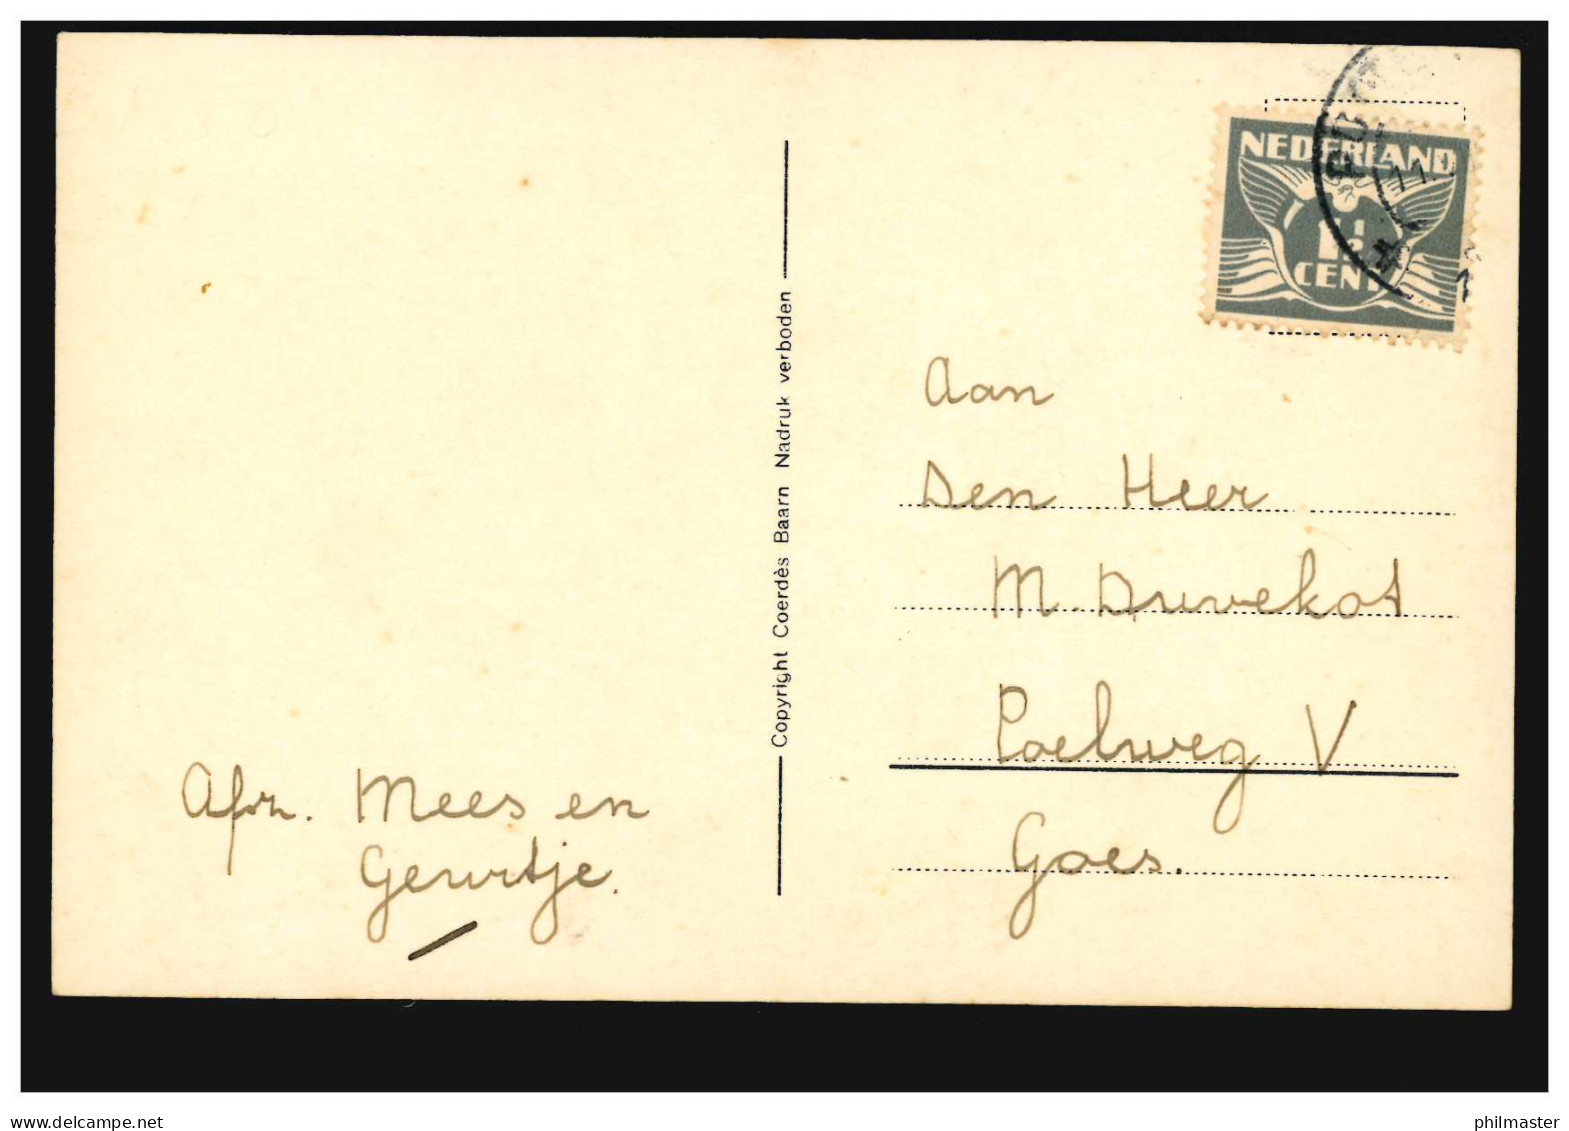 NEDERLAND
1½
CENT
Aan
Den Heer
M. Duvekot
Poelweg V
Goes.
Copyright Coerdès Baarn Nadruk verboden
Afz. Mees en
Geurtje.
www.delcampe.net
philmaster